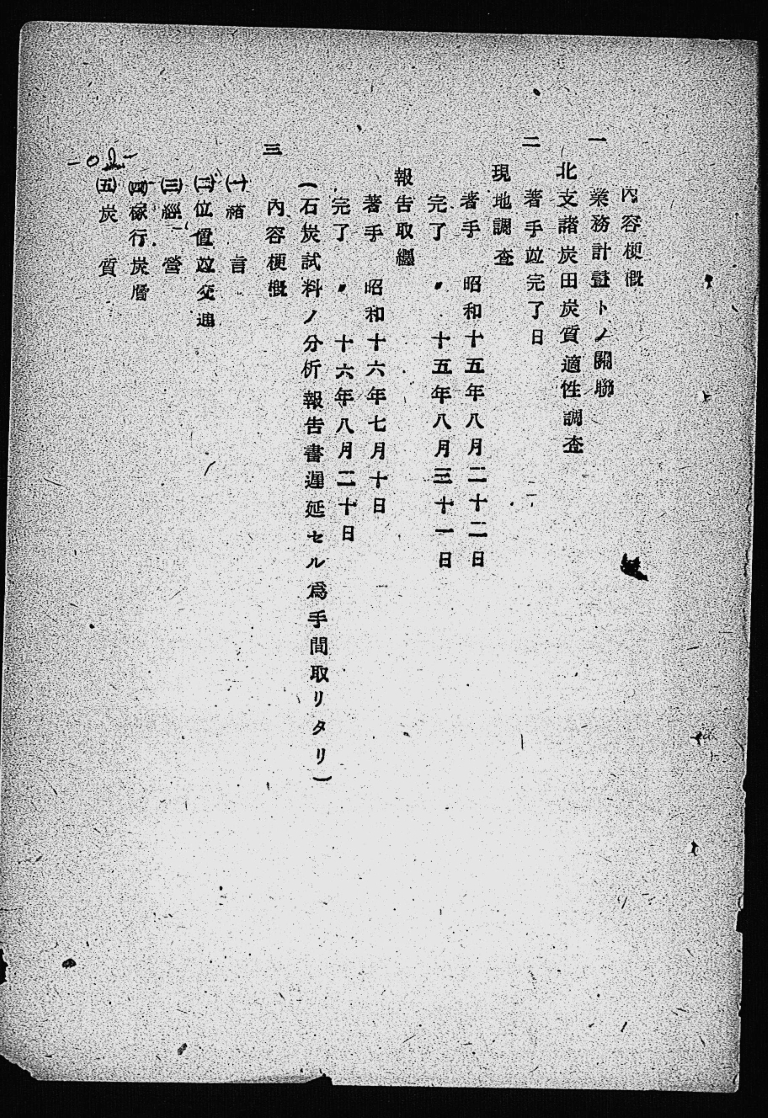 內容梗槪
一 業務計畫トノ關聯
北支諸炭田炭質適性調査
二 著手竝完了日
現地調査
著手 昭和十五年八月二十二日
完了 〃 十五年八月三十一日
報告取纏
著手 昭和十六年七月十日
完了 〃 十六年八月二十日
(石炭試料ノ分析報告書遲延セル爲手間取リタリ)
三 內容梗槪
㈠緖言
㈡位置竝交通
㈢經營
㈣稼行炭層
㈤炭質